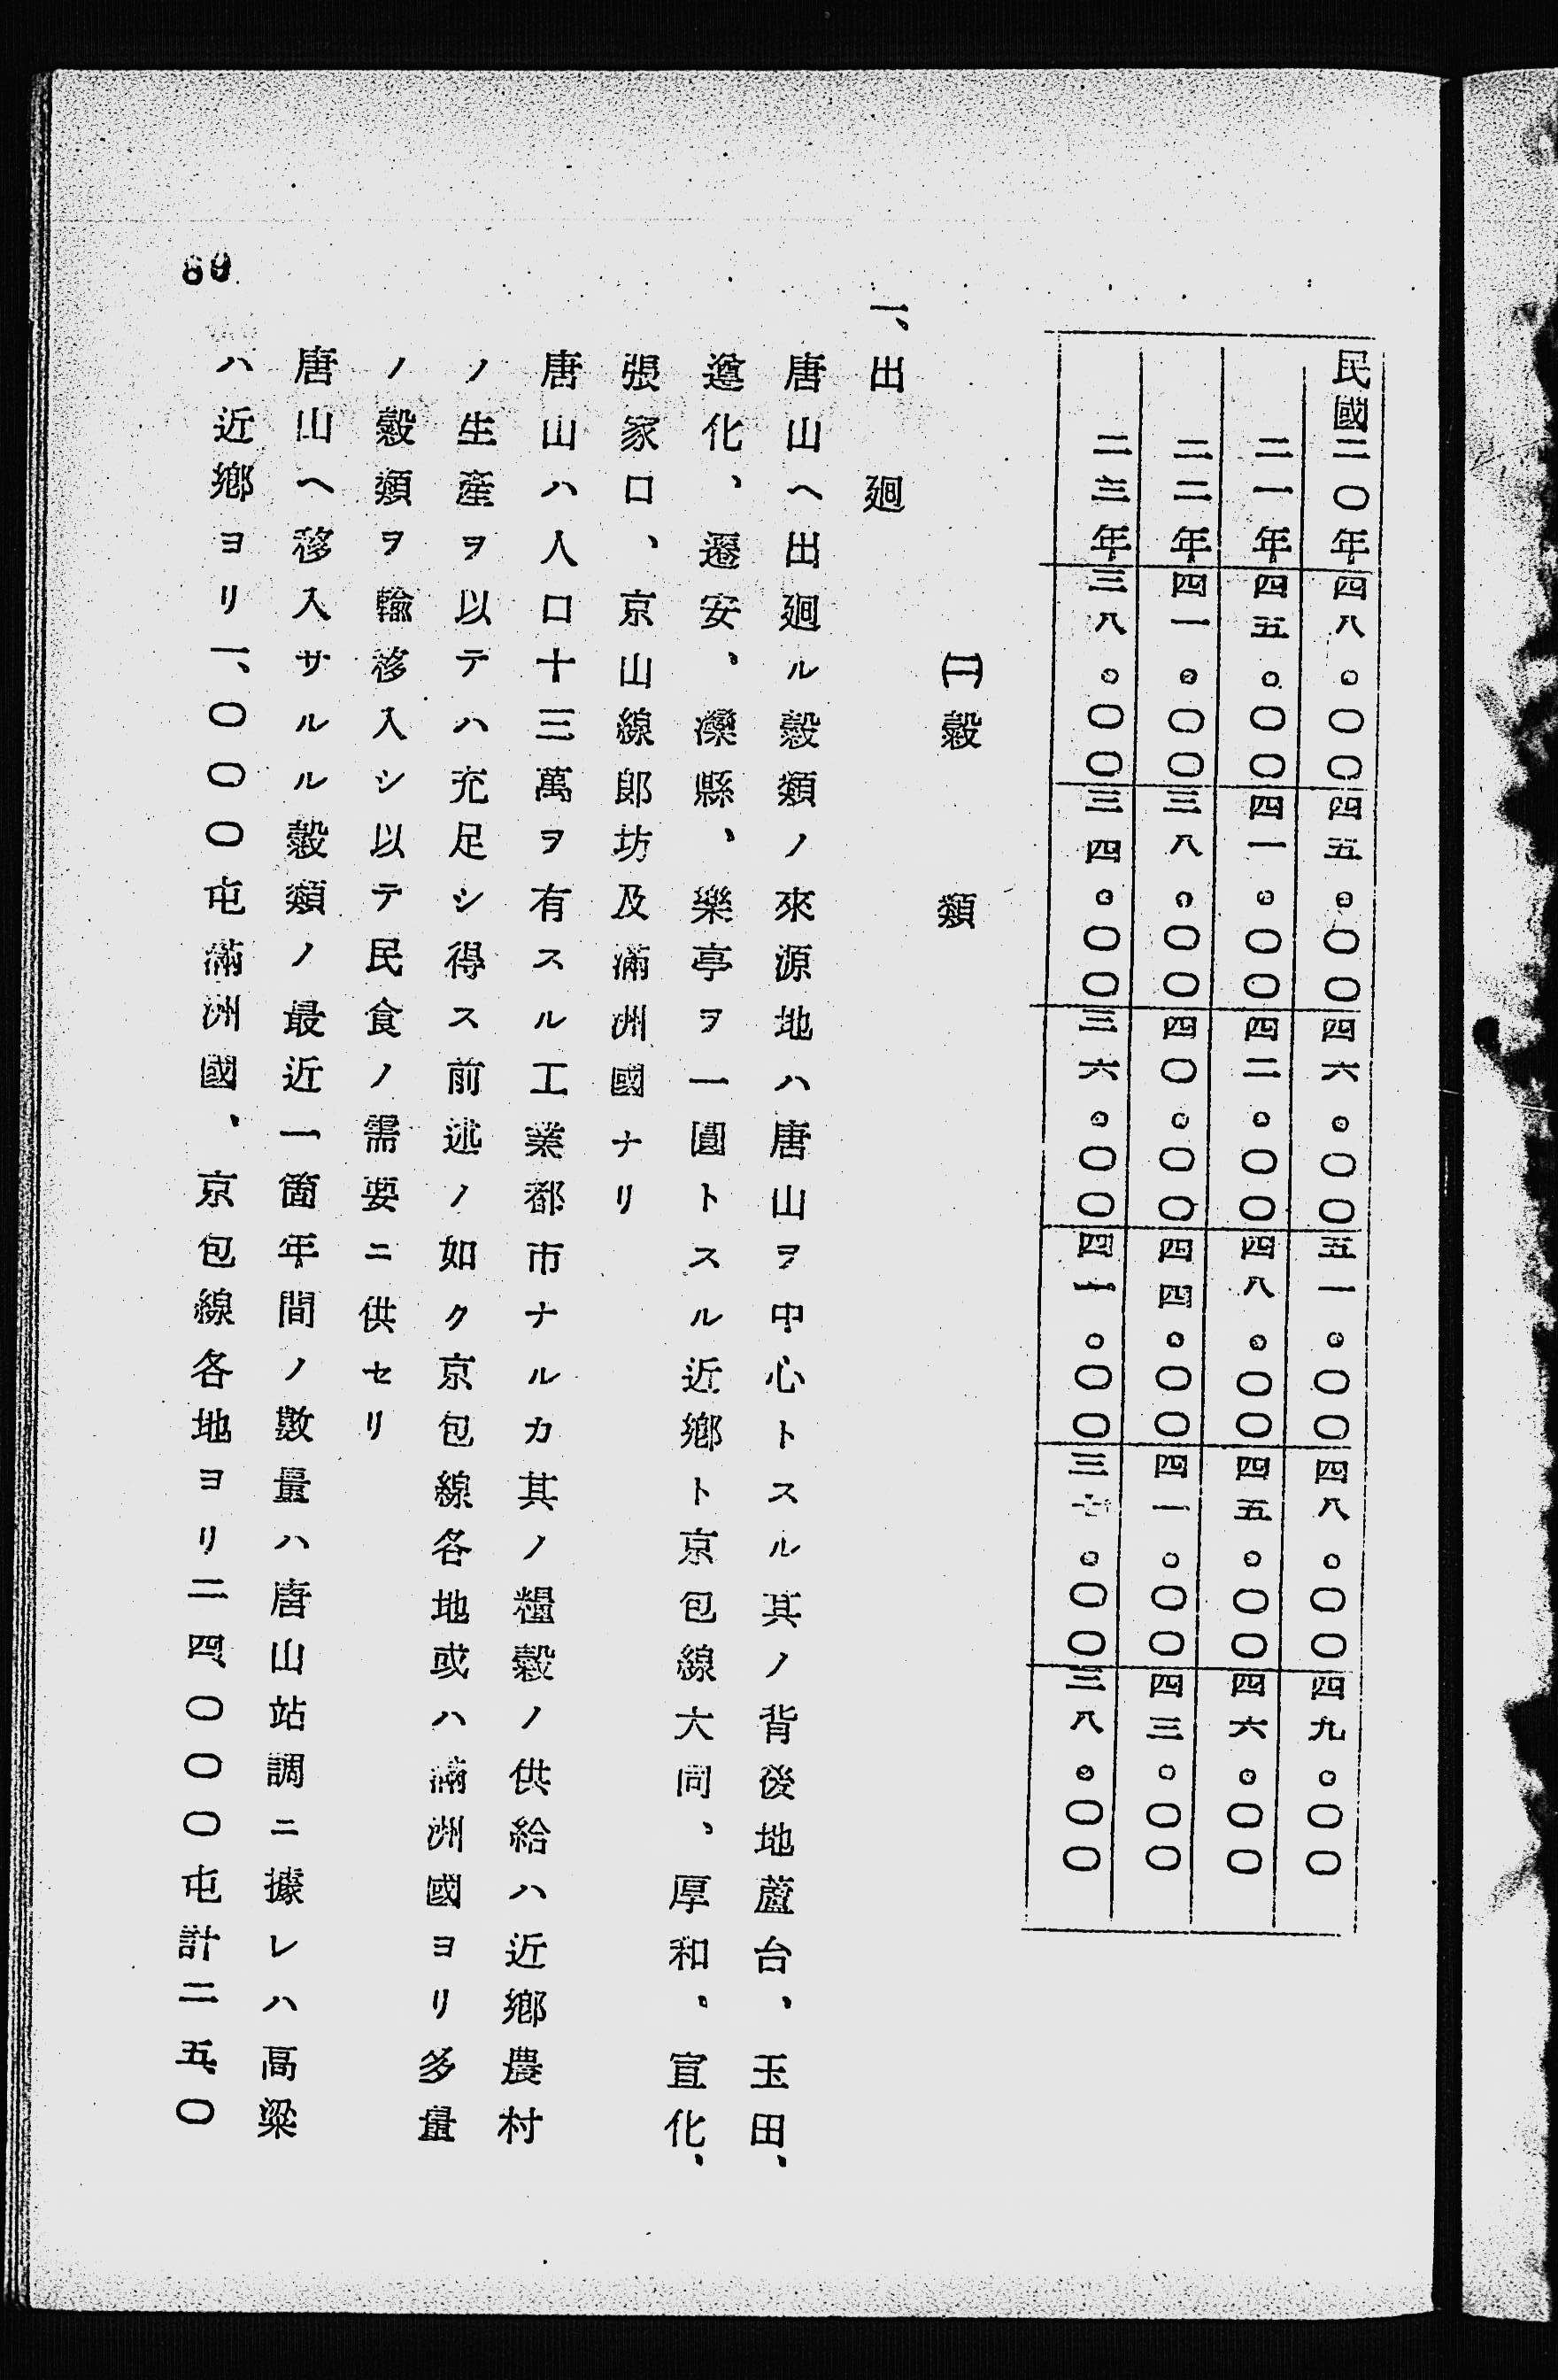 民國二〇年 四八。〇〇 四五。〇〇 四六。〇〇 五一。〇〇 四八。〇〇 四九。〇〇
二一年 四五。〇〇 四一。〇〇 四二。〇〇 四八。〇〇 四五。〇〇 四六。〇〇
二二年 四一。〇〇 三八。〇〇 四〇。〇〇 四四。〇〇 四一。〇〇 四三。〇〇
二三年 三八。〇〇 三四。〇〇 三六。〇〇 四一。〇〇 三七。〇〇 三八。〇〇
㈡穀類
一、出廻
唐山ヘ出廻ル穀類ノ來源地ハ唐山ヲ中心トスル其ノ背後地蘆台、玉田、
遵化、遷安、灤縣、樂亭ヲ一圓トスル近鄕ト京包線大同、厚和、宣化、
張家口、京山線郎坊及滿洲國ナリ
唐山ハ人口十三萬ヲ有スル工業都市ナルカ其ノ糧穀ノ供給ハ近鄕農村
ノ生產ヲ以テハ充足シ得ス前述ノ如ク京包線各地或ハ滿洲國ヨリ多量
ノ穀類ヲ輸移入シ以テ民食ノ需要ニ供セリ
唐山ヘ移入サルル穀類ノ最近一箇年間ノ數量ハ唐山站調ニ據レハ高粱
ハ近鄕ヨリ一、〇〇〇屯滿洲國、京包線各地ヨリ二四、〇〇〇屯計二五、〇
89